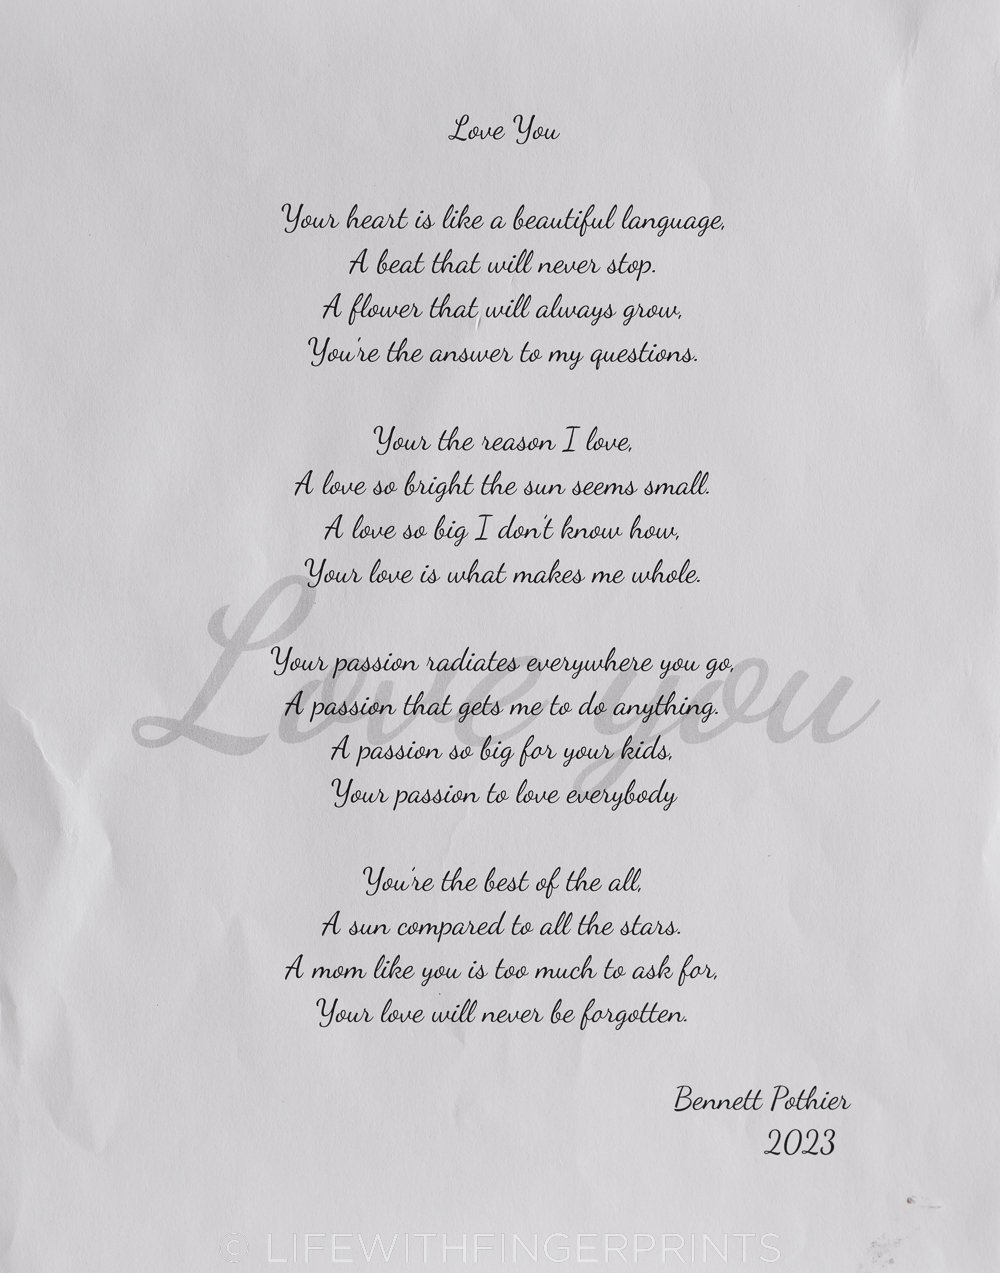 Love You
Your heart is like a beautiful language,
A beat that will never stop.
A flower that will always grow,
You're the answer to my questions.
Your the reason I love,
A love so bright the sun seems small.
A love so big I don't know how,
Your love is what makes me whole.
Your passion radiates everywhere you go,
A passion that gets me to do anything.
A passion so big for your kids,
Your passion to love everybody
Love you
You're the best of the all,
A sun compared to all the stars.
A mom like you is too much to ask for,
Your love will never be forgotten.
Bennett Pothier
2023
© LIFEWITHFINGERPRINTS